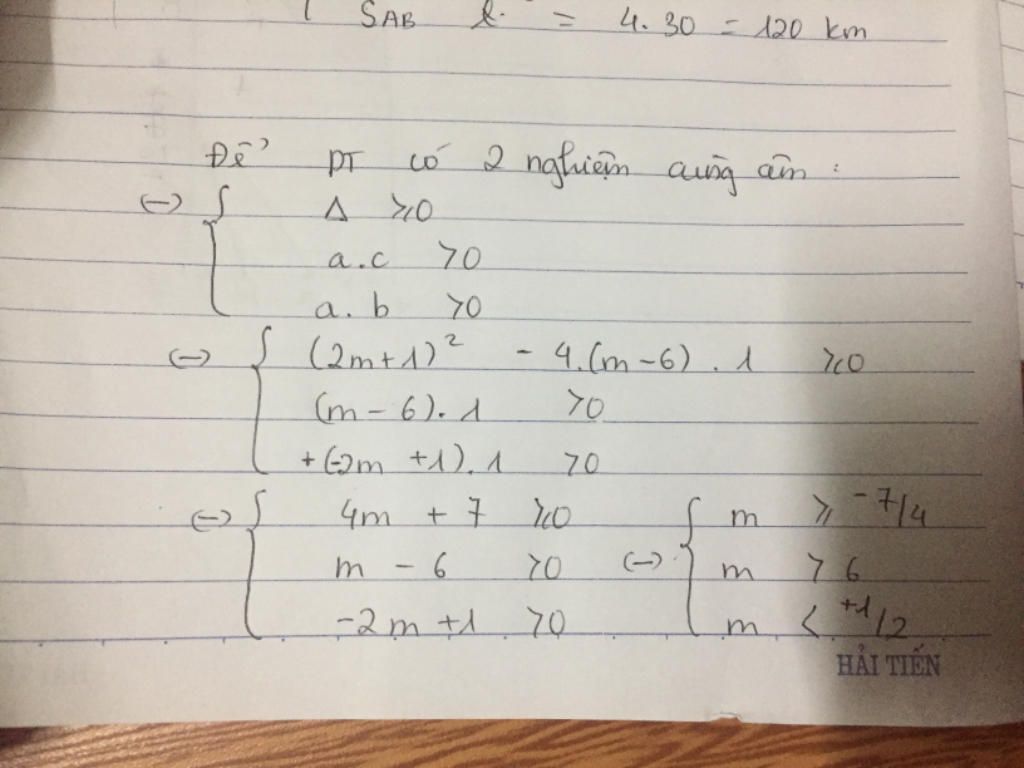 SAB = 4.30 = 120 km
Để PT có 2 nghiệm cùng âm :
(-) { Δ ≥0
a.c >0
a. b >0
(-) { (2m+1)² - 4.(m-6) . 1 ≥0
(m - 6). 1 >0
+(-2m +1). 1 >0
(-) { 4m + 7 ≥0 { m ≥ -7/4
m - 6 >0 (-) m > 6
-2m +1 >0 m < +1/2
HẢI TIẾN